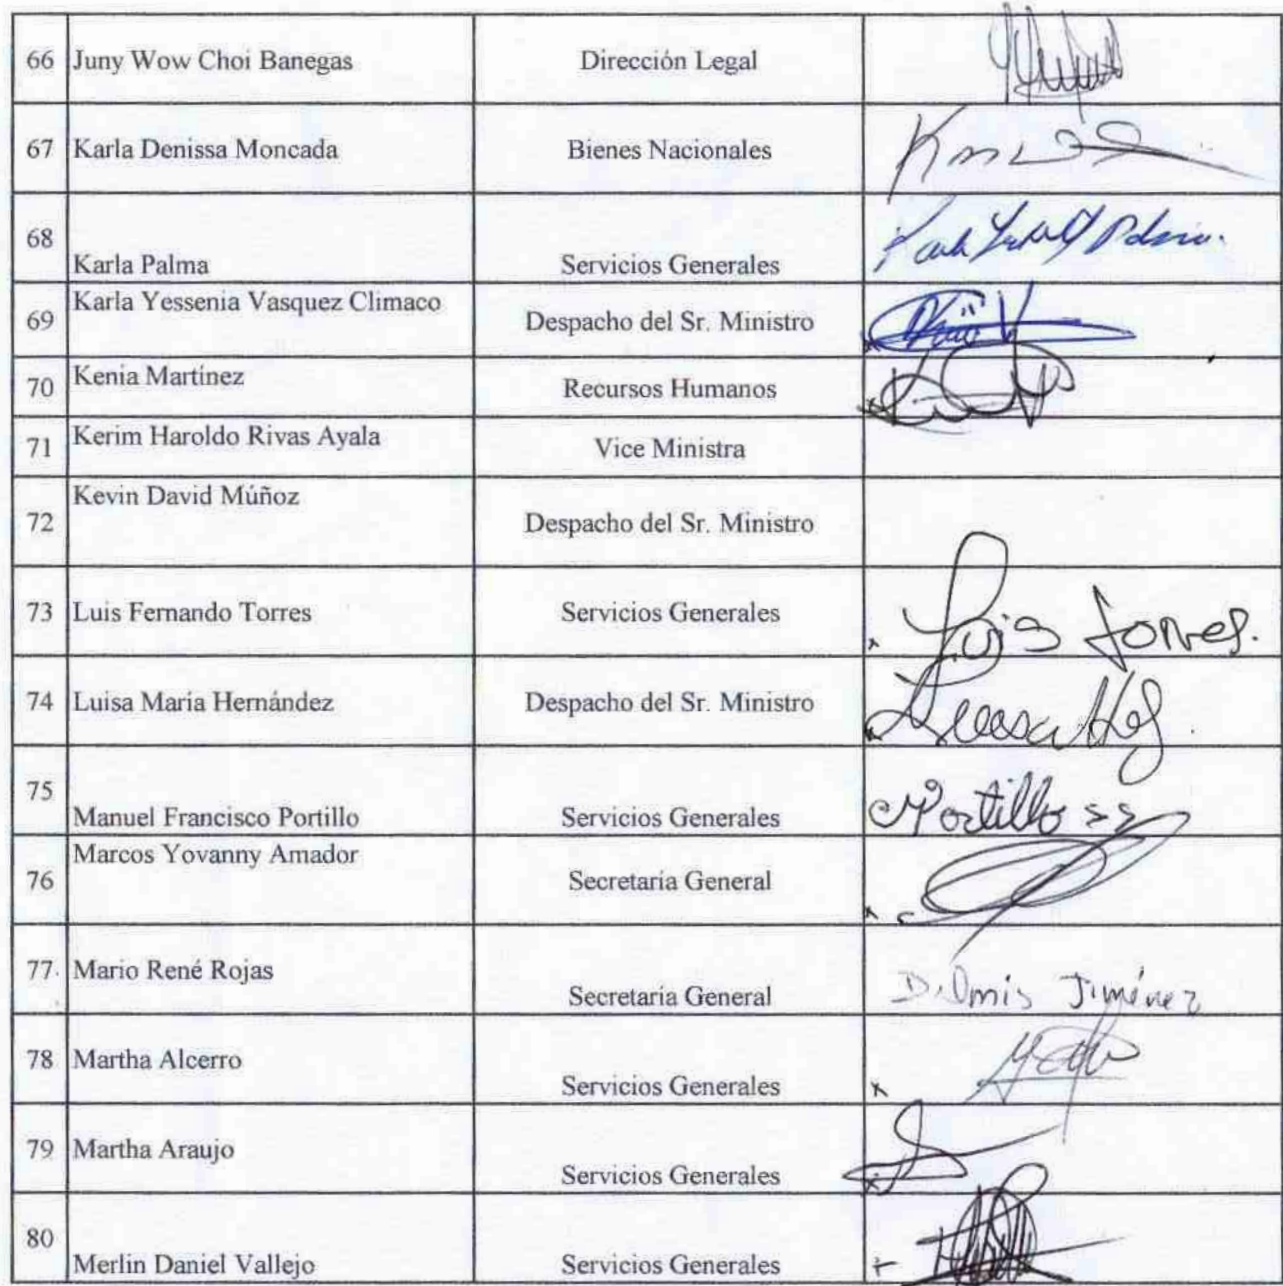 66 Juny Wow Choi Banegas Dirección Legal
67 Karla Denissa Moncada Bienes Nacionales
68 Karla Palma Servicios Generales
69 Karla Yessenia Vasquez Climaco Despacho del Sr. Ministro
70 Kenia Martínez Recursos Humanos
71 Kerim Haroldo Rivas Ayala Vice Ministra
72 Kevin David Múñoz Despacho del Sr. Ministro
73 Luis Fernando Torres Servicios Generales x Luis Torres.
74 Luisa María Hernández Despacho del Sr. Ministro
75 Manuel Francisco Portillo Servicios Generales Portillo
76 Marcos Yovanny Amador Secretaría General x
77. Mario René Rojas Secretaría General Jiménez
78 Martha Alcerro Servicios Generales x
79 Martha Araujo Servicios Generales x
80 Merlin Daniel Vallejo Servicios Generales